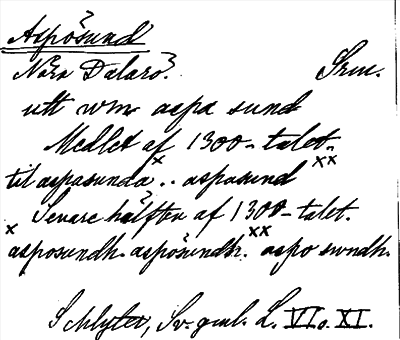 Aspösund
Nära Dalarö. Srm.
utt wm aspa sund
Medlet af 1300-talet.
til aspasunda x .. aspasund xx
Senare hälften af 1300-talet.
x asposundh. aspösundh. xx aspo swndh.
Schlyter, Sv. gml. L. VI o. XI.